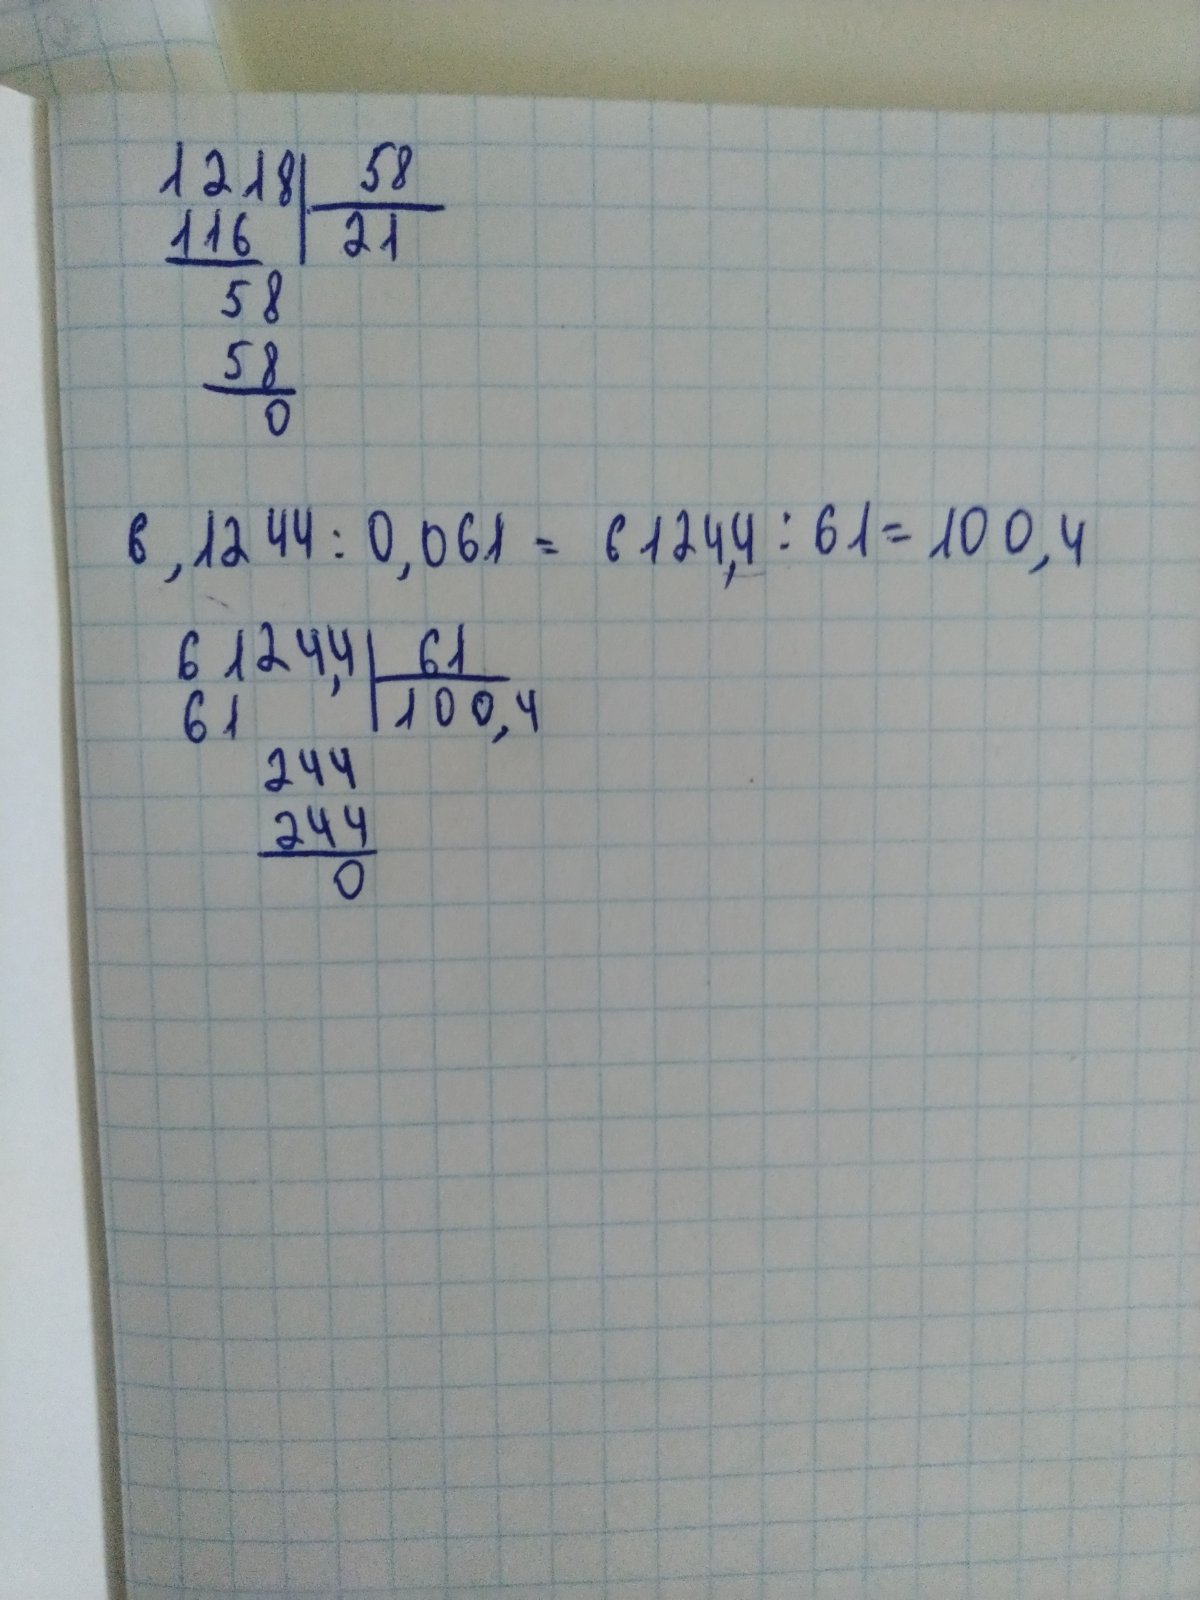 1218 58
116 21
58
58
0
6,1244 : 0,061 = 6124,4 : 61 = 100,4
6124,4 61
61 100,4
244
244
0